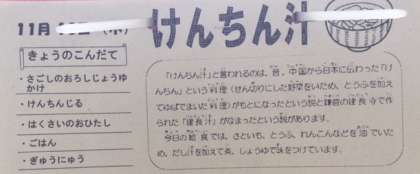 11月
(木)
けんちん汁
きょうのこんだて
・さごしのおろしじょうゆ
かけ
・けんちんじる
・はくさいのおひたし
・ごはん
・ぎゅうにゅう
「けんちん汁」と言われるのは、昔、中国から日本に伝わった「け
んちん」という料理(せん切りにした野菜をいため、とうふを加え
てゆばでまいた料理)がもとになったという説と鎌倉の建長寺で作
られた「建長汁」がなまったという説があります。
今日の給食では、さといも、とうふ、れんこんなどを油でいた
め、だし汁を加えて煮、しょうゆで味をつけています。